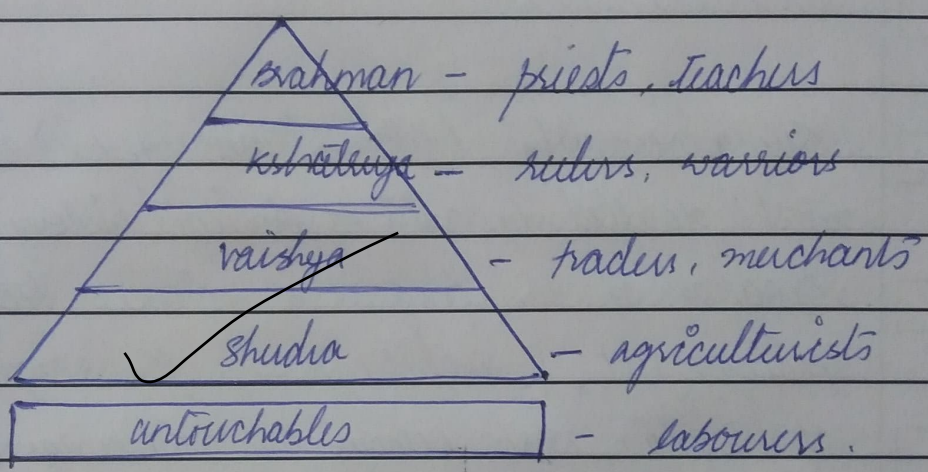 Brahman - priests, teachers
Kshatruya - rulers, warriors
vaishya - traders, merchants
Shudra - agriculturists
untouchables - labourers.